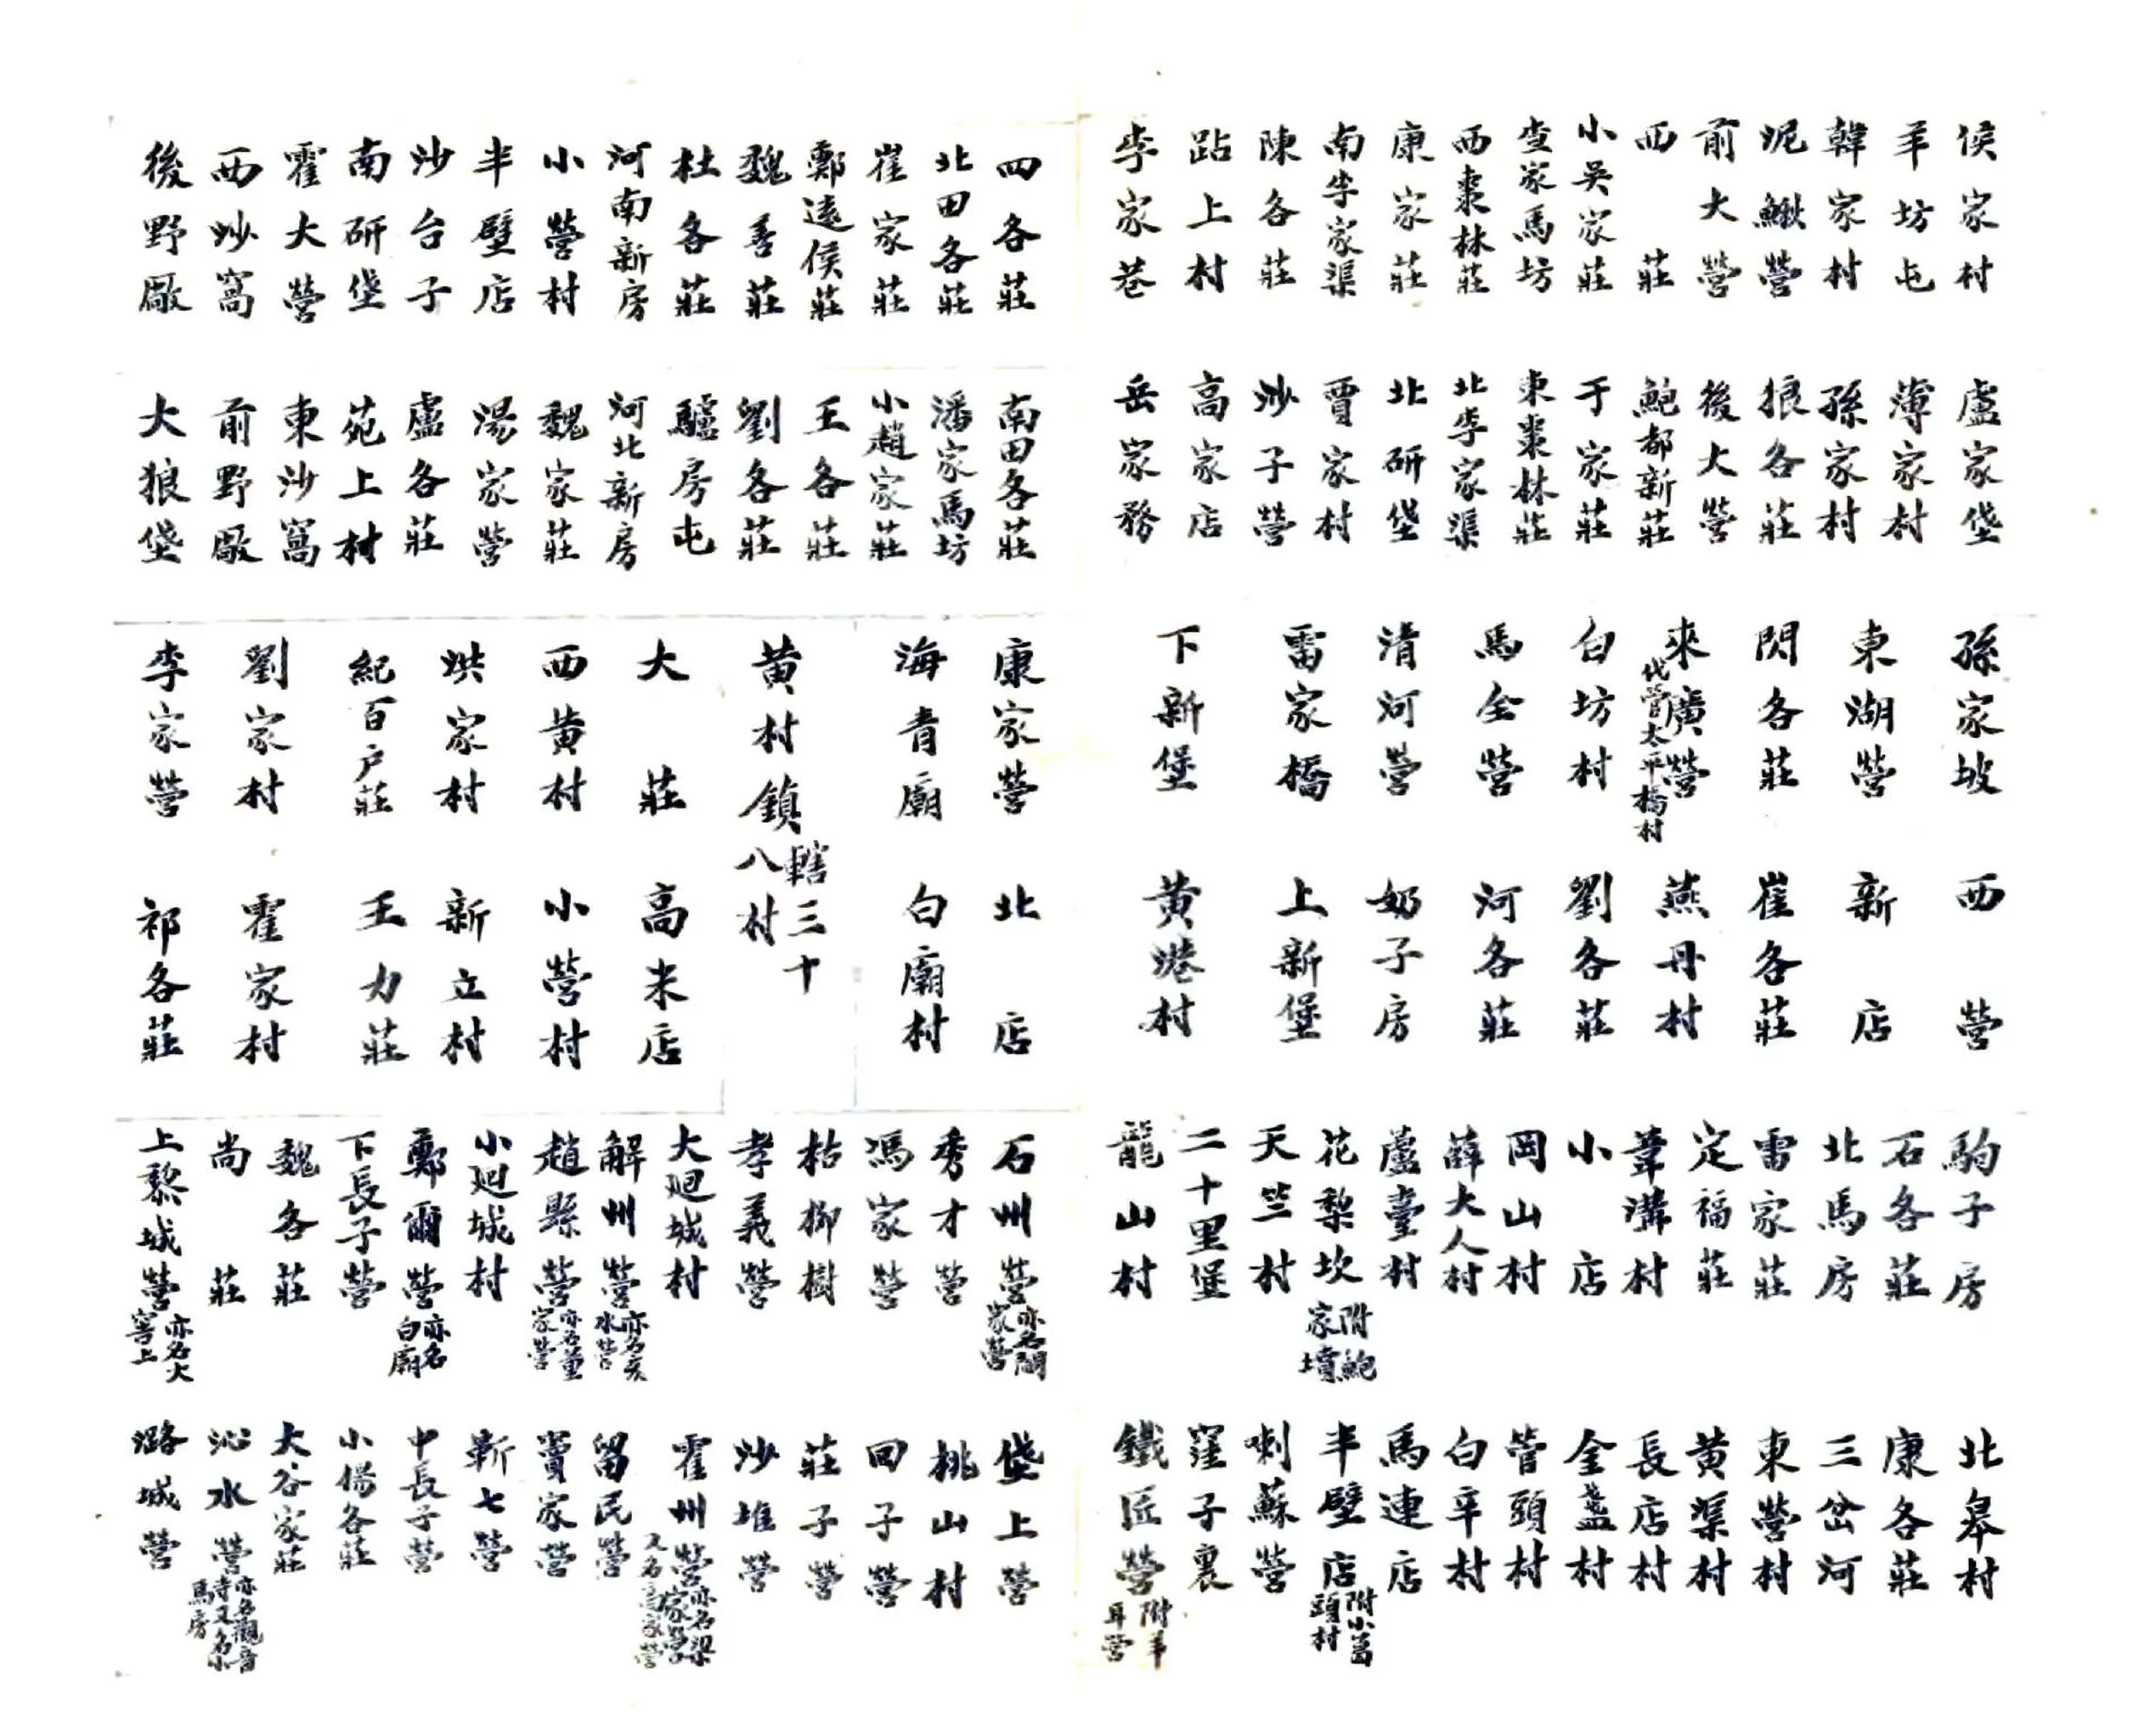 侯家村
羊坊屯
韓家村
泥鰍營
前大營
西莊
小吳家莊
查家馬坊
西棗林莊
康家莊
南李家渠
陳各莊
跕上村
李家巷
四各莊
北田各莊
崔家莊
鄭遠侯莊
魏善莊
杜各莊
河南新房
小營村
半壁店
沙台子
南研垡
霍大營
西沙窩
後野厰
盧家垡
薄家村
孫家村
狼各莊
後大營
鮑都新莊
于家莊
東棗林莊
北李家渠
北研垡
賈家村
沙子營
高家店
岳家務
南田各莊
潘家馬坊
小趙家莊
王各莊
劉各莊
驢房屯
河北新房
魏家莊
湯家營
盧各莊
苑上村
東沙窩
前野厰
大狼垡
孫家坡
東湖營
閃各莊
來廣營代管太平橋村
白坊村
馬全營
清河營
雷家橋
下新堡
康家營
海青廟
黃村鎮轄三十八村
大莊
西黃村
洪家村
紀百户莊
劉家村
李家營
西營
新店
崔各莊
燕丹村
劉各莊
河各莊
奶子房
上新堡
黃港村
北店
白廟村
高米店
小營村
新立村
王力莊
霍家村
祁各莊
駒子房
石各莊
北馬房
雷家莊
定福莊
葦溝村
小店
岡山村
薛大人村
蘆臺村
花梨坎附鮑家墳
天竺村
二十里堡
龍山村
石州營亦名閻家營
秀才營
馮家營
枯柳樹
孝義營
大廻城村
解州營亦名亥水營
趙縣營亦名董家營
小廻城村
鄭爾營亦名白廟
下長子營
魏各莊
尚莊
上黎城營亦名火窖上
北皋村
康各莊
三岔河
東營村
黃渠村
長店村
金盞村
管頭村
白平村
馬連店
半壁店附小葛頭村
喇蘇營
窪子裏
鐵匠營附羊耳營
垡上營
桃山村
回子營
莊子營
沙堆營
霍州營亦名梁家營又名高家營
留民營
竇家營
靳七營
中長子營
小楊各莊
大谷家莊
沁水營亦名觀音寺又名小馬房
潞城營